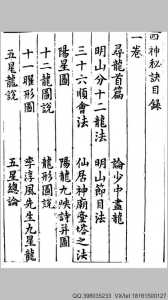 四神秘訣目錄
一卷
尋龍首篇
論少中畫龍
明山分十二龍法
明山節目法
三十六順會法
仙居神廟堂塔之法
陽星圖
陽龍九映詩并圖
十二龍圖說
龍形圖說
十一曜形圖
李淳風先生九星龍
五星龍說
五星總論
QQ 396035233 VX/tel 18161500127